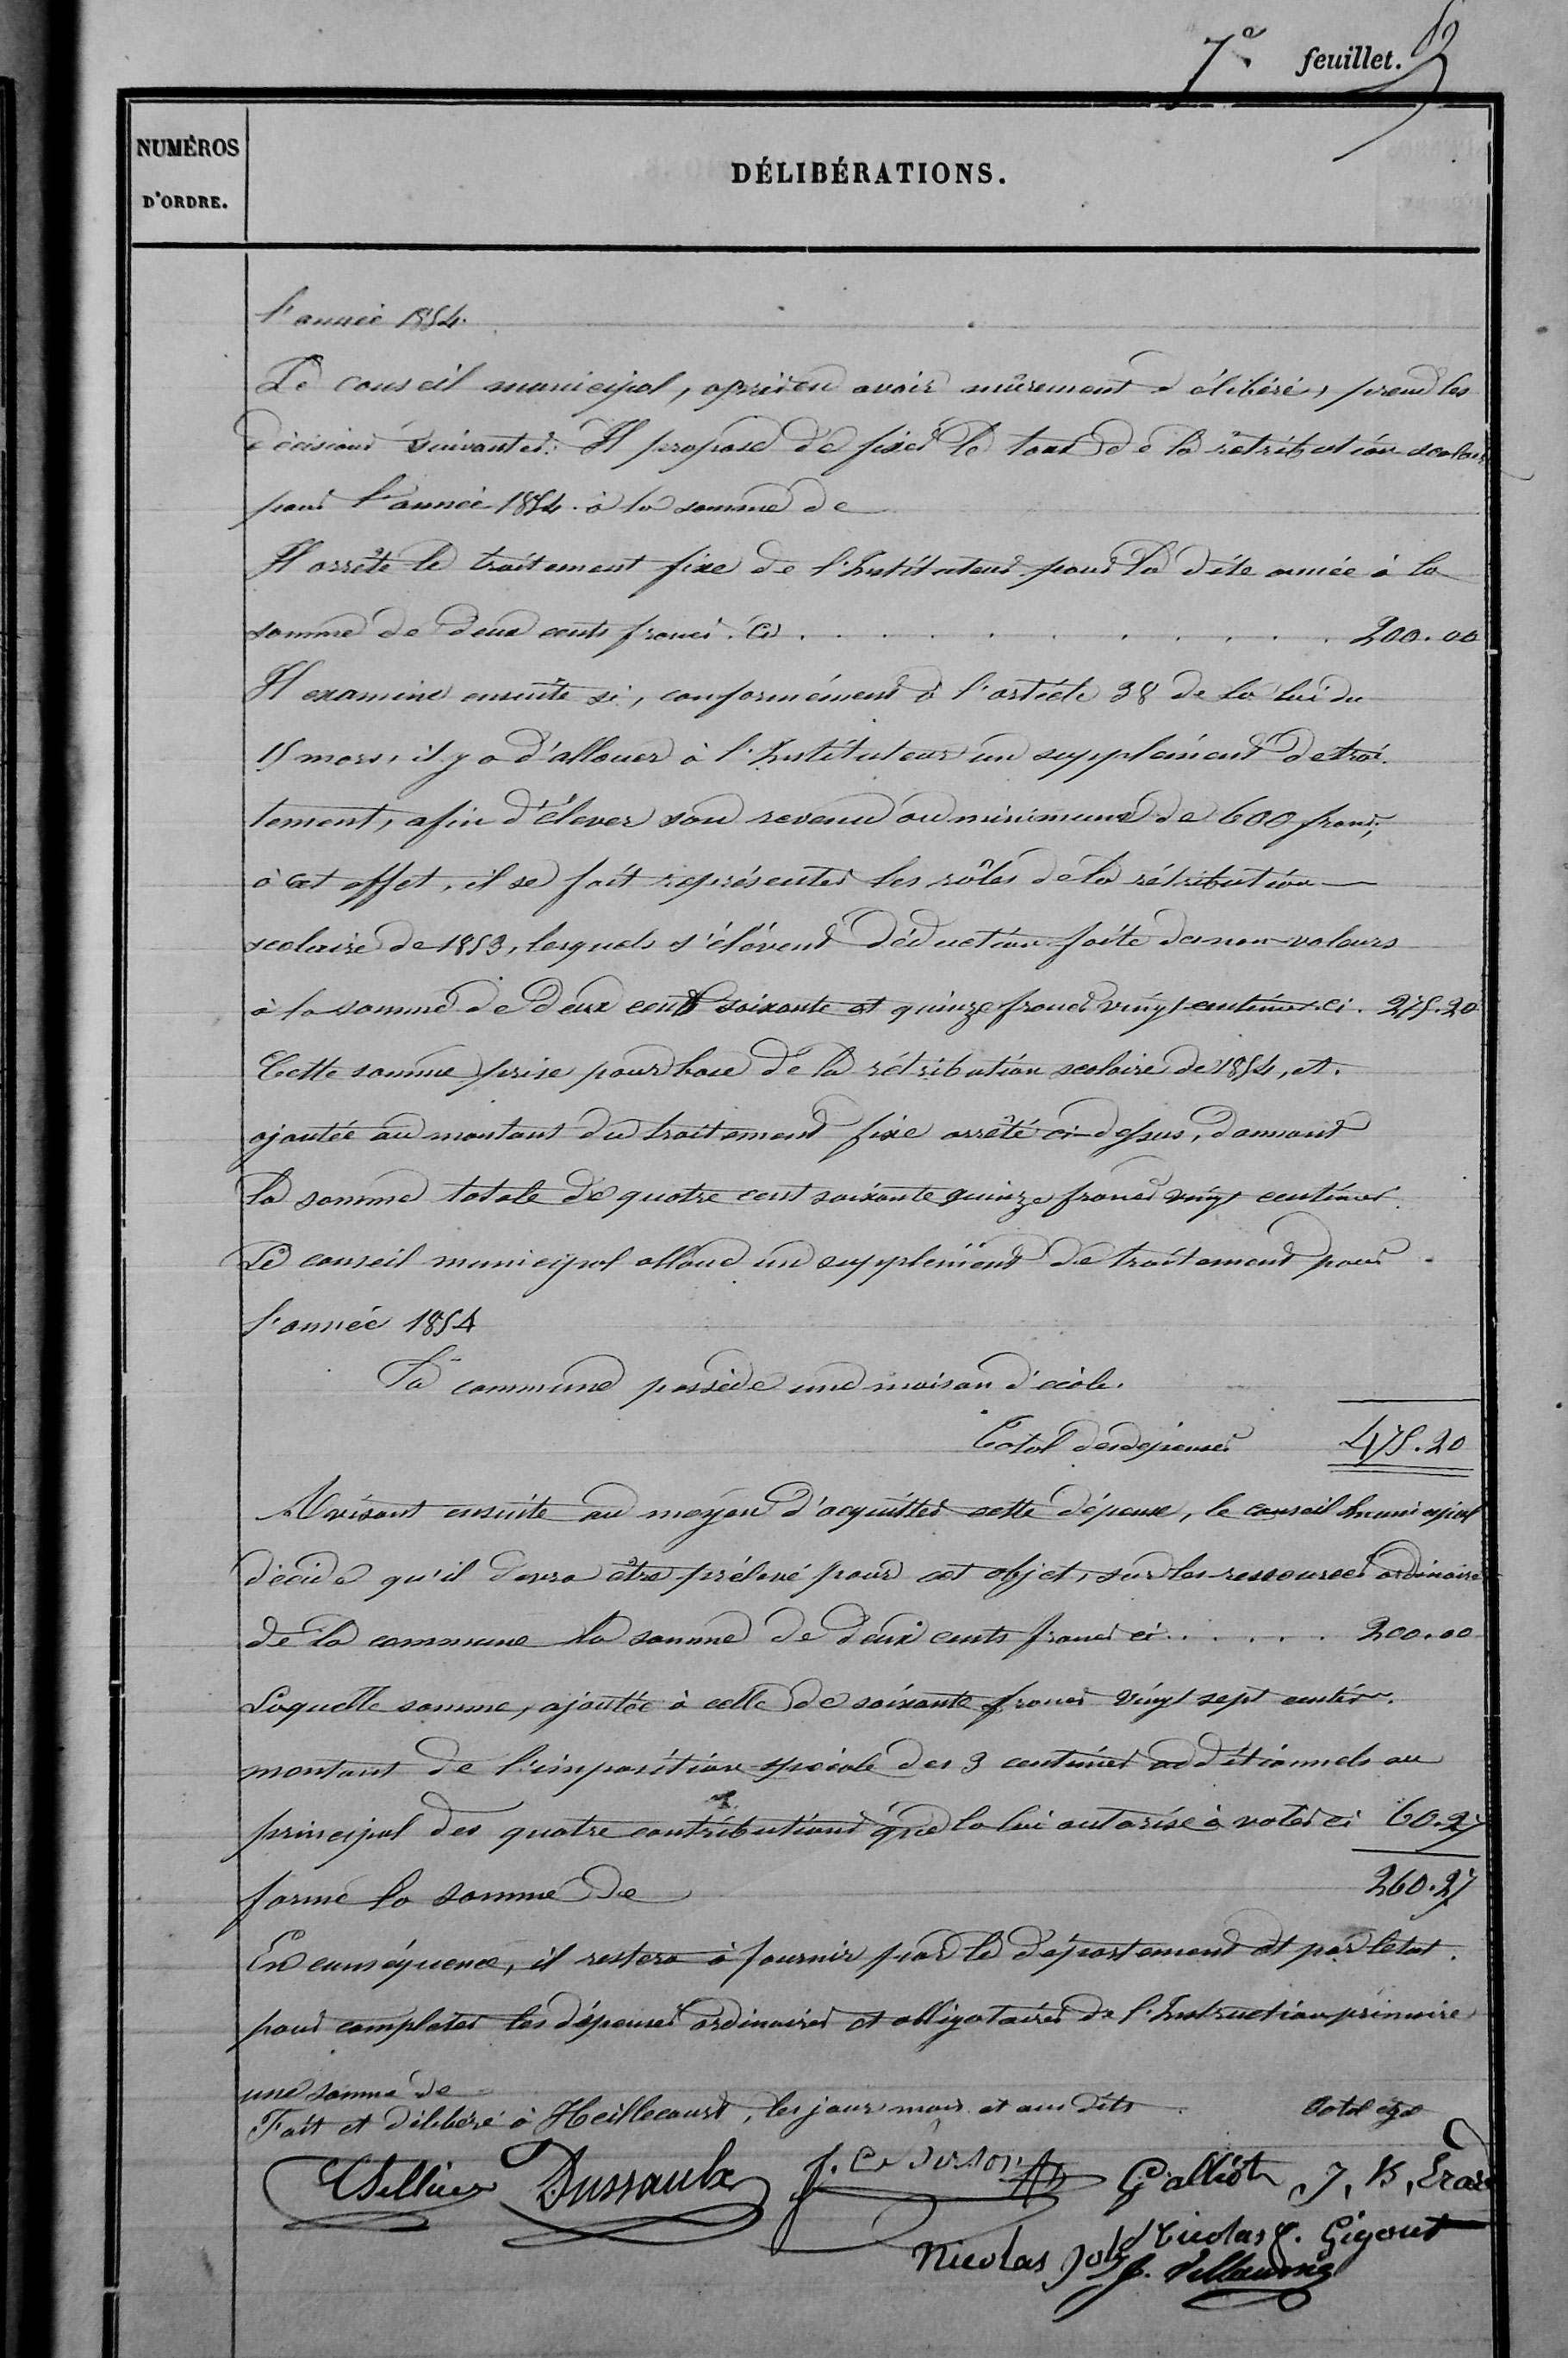 7e feuillet.
NUMÉROS
D'ORDRE.
DÉLIBÉRATIONS.
l'année 1854.
Le conseil municipal, après en avoir mûrement délibéré, prend les
décisions suivantes: Il propose de fixer le taux de la rétribution scolaire
pour l'année 1854. à la somme de
Il arrête le traitement fixe de l'Instituteur pour la dite année à la
somme de deux cents francs. Ci . . . . . . . . . . 200.00
Il examine ensuite si, conformément à l'article 38 de la loi du
15 mars, il y a d'allouer à l'Instituteur un supplément de trai-
tement, afin d'élever son revenu au minimum de 600 francs,
à cet effet, il se fait représenter les rôles de la rétribution
scolaire de 1853, lesquels s'élèvent déduction faite des non valeurs
à la somme de deux cent soixante et quinze francs vingt centimes. ci. 275.20
Cette somme prise pour base de la rétribution scolaire de 1854, et.
ajoutée au montant du traitement fixe arrêté ci-dessus, donnant
la somme totale de quatre cent soixante quinze francs vingt centimes.
Le conseil municipal alloue un supplément de traitement pour
l'année 1854
La commune possède une maison d'école.
Total des dépenses 475.20
Avisant ensuite au moyen d'acquitter cette dépense, le conseil municipal
décide qu'il devra être prélevé pour cet objet, sur les ressources ordinaires
de la commune la somme de deux cents francs ci . . . . . 200.00
Laquelle somme, ajoutée à celle de soixante francs vingt sept centimes.
montant de l'imposition spéciale des 3 centimes additionnels au
principal des quatre contributions que la loi autorise à voter ci 60.27
forme la somme de 260.27
En conséquence, il restera à fournir par le département et par l'etat.
pour completer les dépenses ordinaires et obligatoires de l'Instruction primaire
une somme de
Fait et délibéré à Heillecourt, les jour mois et an dits. Total égal
Dussaulx Galliot J, B, Erard
Nicolas Nicolas C. Gigout